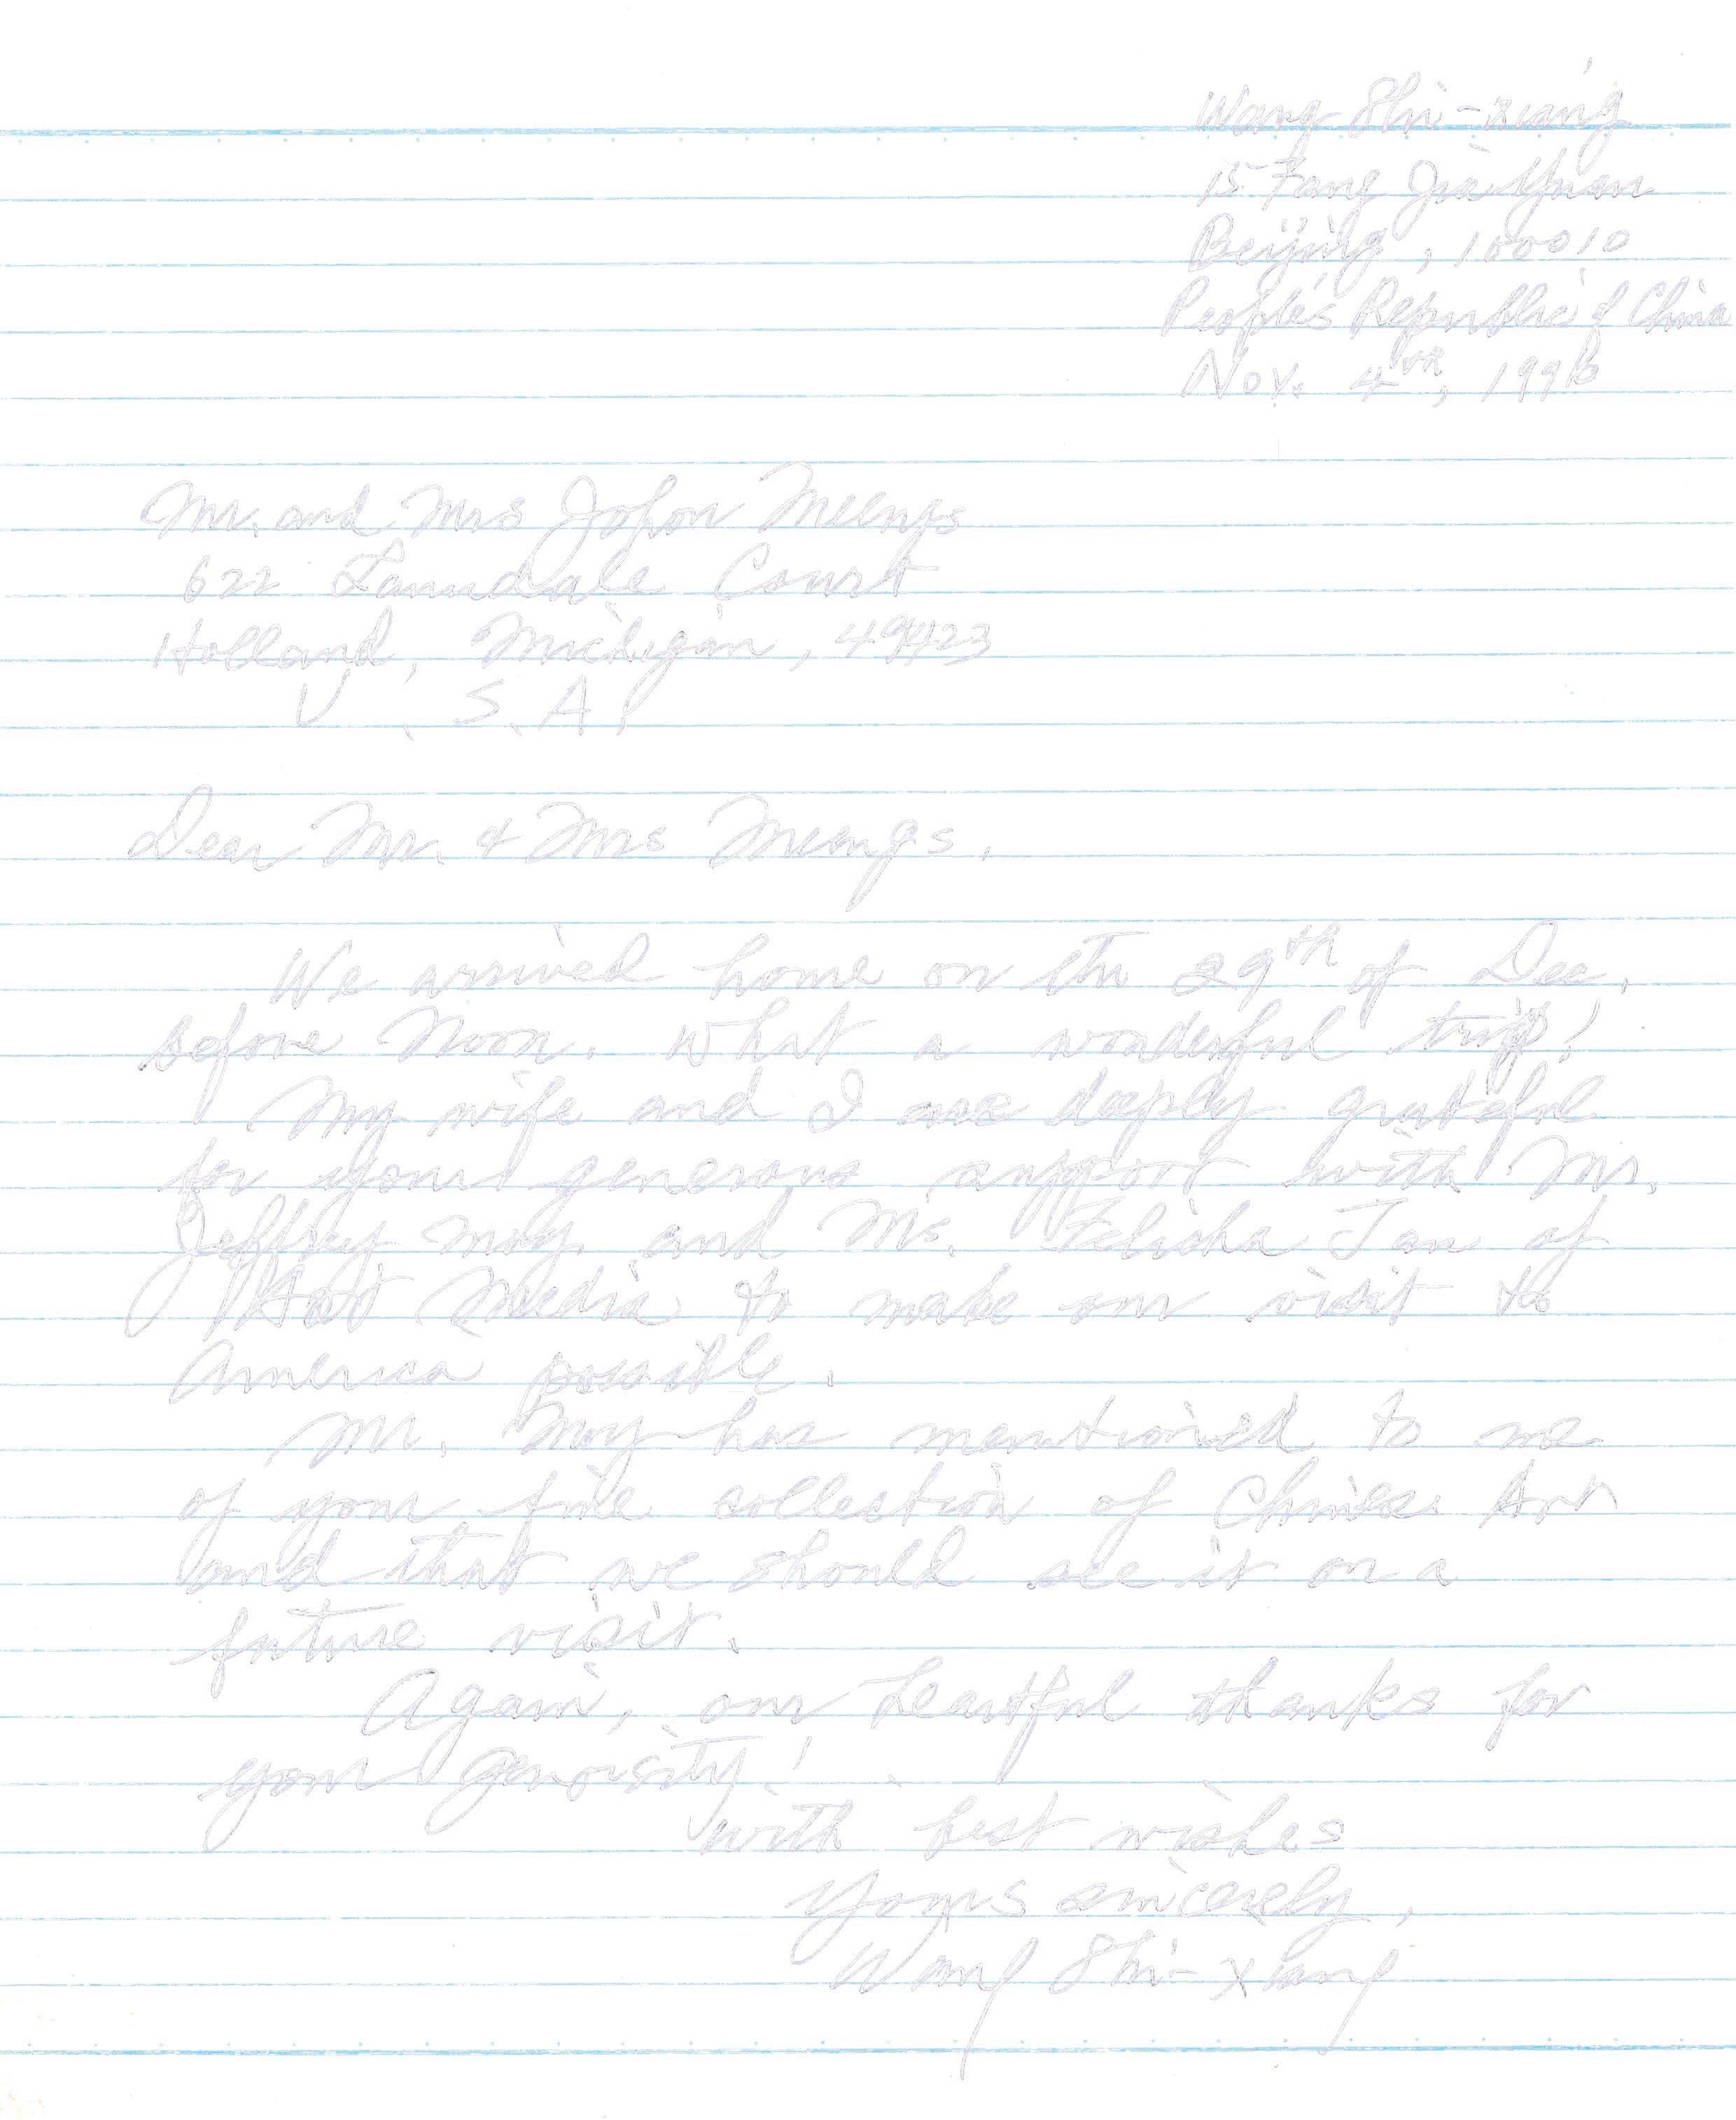 Wang Shi-xiang
15 Fang Jia Yuan
Beijing, 100010
People's Republic of China
Nov. 4th, 1996
Mr. and Mrs John Meengs
622 Lawndale Court
Holland, Michigan, 49423
U. S. A.
Dear Mr. & Mrs Meengs.
We arrived home on the 29th of Dec.
before Noon. What a wonderful trip!
My wife and I are deeply grateful
for your generous support with Mr.
Jeffrey Moy and Ms. Felicha Tan of
Media to make our visit to
America possible.
Mr. Moy has mentioned to me
of your fine collection of Chinese Art
and that we should see it on a
future visit.
Again, our heartful thanks for
your generosity!
With best wishes
Yours sincerely,
Wang Shi-xiang